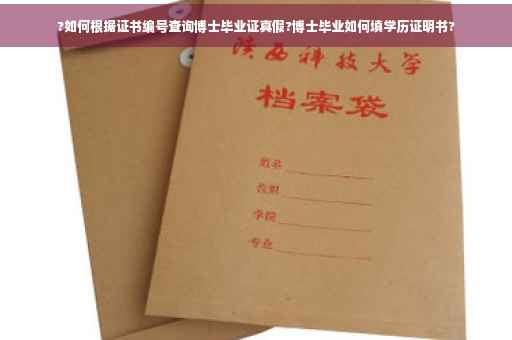 ?如何根据证书编号查询博士毕业证真假?博士毕业如何填学历证明书?
陕西科技大学
档案袋
姓名
性别
学院
专业